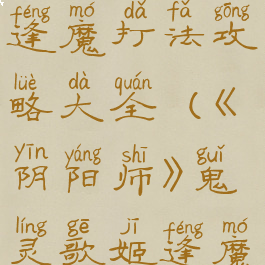 féng mó dǎ fǎ gōng
逢魔打法攻
lüè dà quán
略大全（《
yīn yáng shī guǐ
阴阳师》鬼
líng gē jī féng mó
灵歌姬逢魔